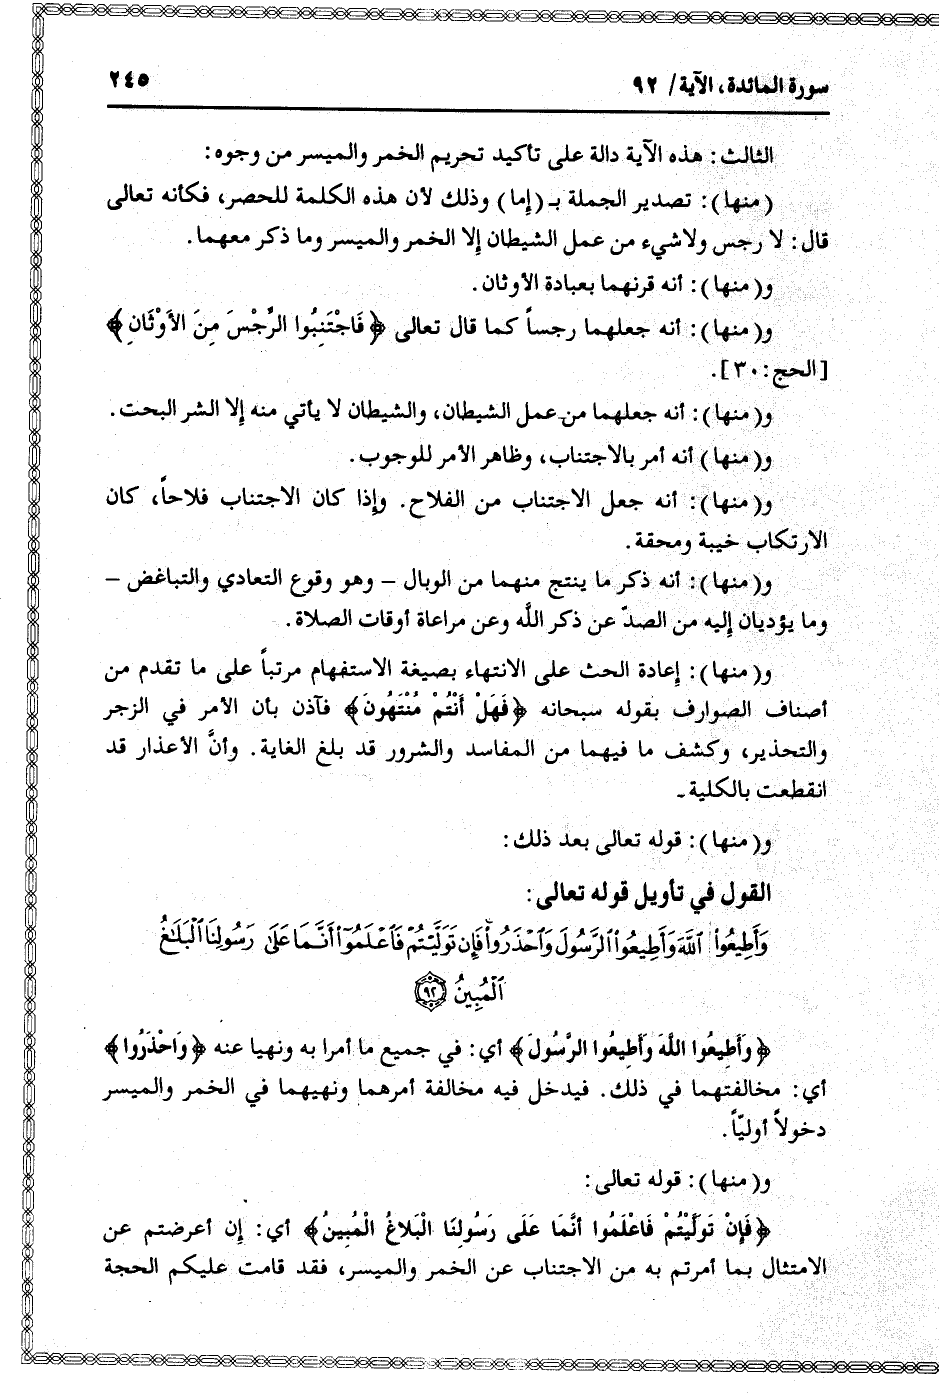 سورة المائدة، الآية/ ٩٢
٢٤٥
الثالث: هذه الآية دالة على تأكيد تحريم الخمر والميسر من وجوه:
(منها): تصدير الجملة بـ (إما) وذلك لأن هذه الكلمة للحصر، فكأنه تعالى
قال: لا رجس ولاشيء من عمل الشيطان إلا الخمر والميسر وما ذكر معهما.
و(منها): أنه قرنهما بعبادة الأوثان.
و(منها): أنه جعلهما رجساً كما قال تعالى ﴿فَاجْتَنِبُوا الرِّجْسَ مِنَ الأَوْثَانِ﴾
[الحج:٣٠].
و(منها): أنه جعلهما من عمل الشيطان، والشيطان لا يأتي منه إلا الشر البحت.
و(منها) أنه أمر بالاجتناب، وظاهر الأمر للوجوب.
و(منها): أنه جعل الاجتناب من الفلاح. وإذا كان الاجتناب فلاحاً، كان
الارتكاب خيبة ومحقة.
و(منها): أنه ذكر ما ينتج منهما من الوبال – وهو وقوع التعادي والتباغض –
وما يؤديان إليه من الصدّ عن ذكر اللَّه وعن مراعاة أوقات الصلاة.
و(منها): إعادة الحث على الانتهاء بصيغة الاستفهام مرتباً على ما تقدم من
أصناف الصوارف بقوله سبحانه ﴿فَهَلْ أَنْتُمْ مُنْتَهُونَ﴾ فآذن بأن الأمر في الزجر
والتحذير، وكشف ما فيهما من المفاسد والشرور قد بلغ الغاية. وأنَّ الأعذار قد
انقطعت بالكلية.
و(منها): قوله تعالى بعد ذلك:
القول في تأويل قوله تعالى:
وَأَطِيعُوا۟ ٱللَّهَ وَأَطِيعُوا۟ ٱلرَّسُولَ وَٱحْذَرُوا۟ۚ فَإِن تَوَلَّيْتُمْ فَٱعْلَمُوٓا۟ أَنَّمَا عَلَىٰ رَسُولِنَا ٱلْبَلَـٰغُ
ٱلْمُبِينُ ٩٢
﴿وَأَطِيعُوا اللَّهَ وَأَطِيعُوا الرَّسُولَ﴾ أي: في جميع ما أمرا به ونهيا عنه ﴿وَاحْذَرُوا﴾
أي: مخالفتهما في ذلك. فيدخل فيه مخالفة أمرهما ونهيهما في الخمر والميسر
دخولاً أوليّاً.
و(منها): قوله تعالى:
﴿فَإِنْ تَوَلَّيْتُمْ فَاعْلَمُوا أَنَّمَا عَلَى رَسُولِنَا الْبَلاغُ الْمُبِينُ﴾ أي: إن أعرضتم عن
الامتثال بما أمرتم به من الاجتناب عن الخمر والميسر، فقد قامت عليكم الحجة